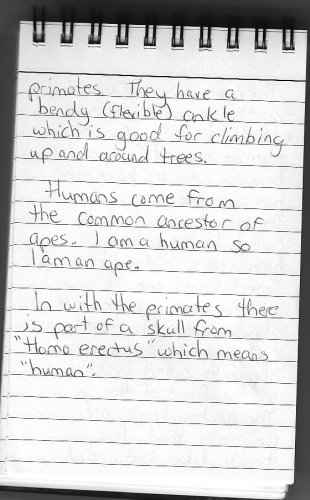 primates. They have a
bendy (flexible) ankle
which is good for climbing
up and around trees.
Humans come from
the common ancestor of
apes. I am a human so
I am an ape.
In with the primates there
is part of a skull from
"Homo erectus" which means
"human".